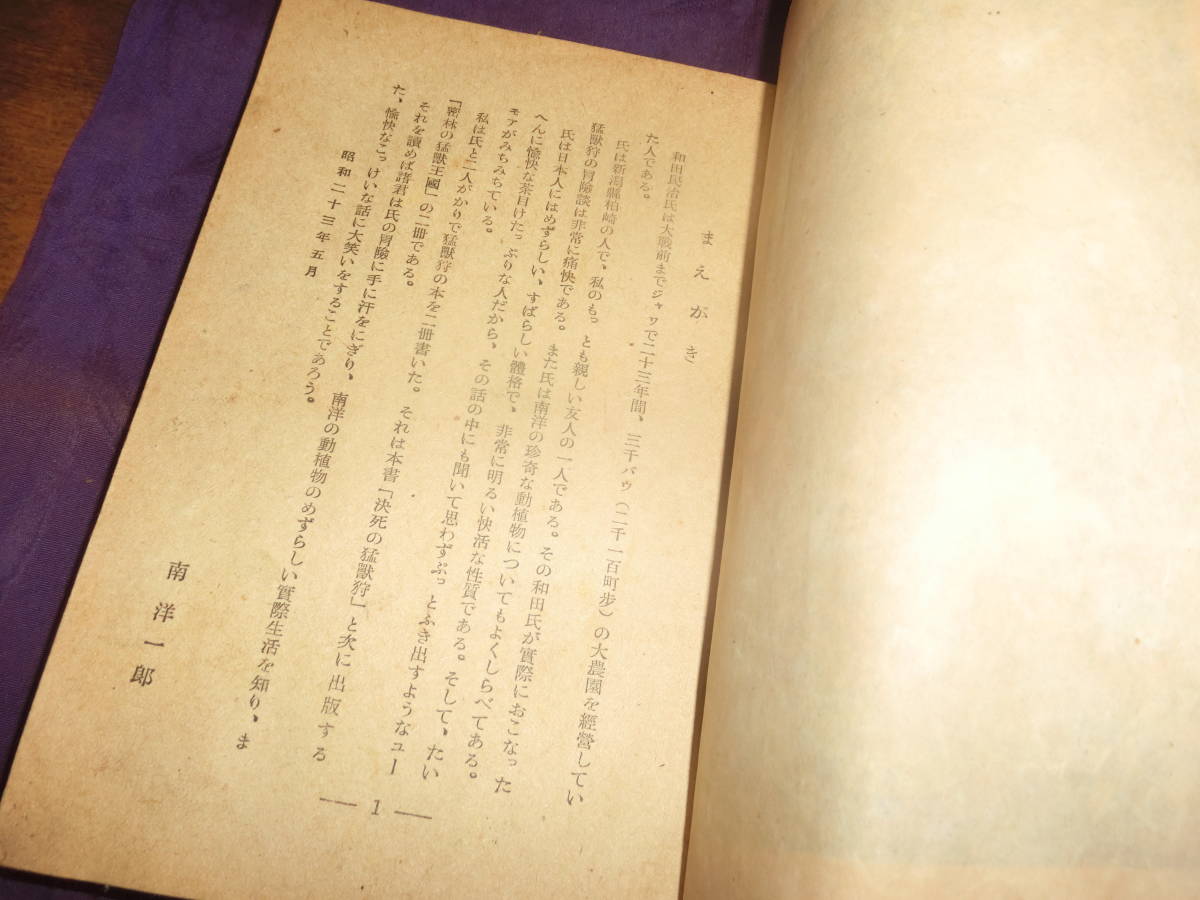 まえがき
和田民治氏は大戰前までジャワで二十三年間、三千バウ（二千一百町步）の大農園を經營してい
た人である。
氏は新潟縣柏崎の人で、私のもっとも親しい友人の一人である。その和田氏が實際におこなった
猛獸狩の冒險談は非常に痛快である。また氏は南洋の珍奇な動植物についてもよくしらべてある。
氏は日本人にはめずらしい、すばらしい體格で、非常に明るい快活な性質である。そして、たい
へんに愉快な茶目けたっぷりな人だから、その話の中にも聞いて思わずぷっとふき出すようなユー
モアがみちみちている。
私は氏と二人がかりで猛獸狩の本を二冊書いた。それは本書「決死の猛獸狩」と次に出版する
「密林の猛獸王國」の二冊である。
それを讀めば諸君は氏の冒險に手に汗をにぎり、南洋の動植物のめずらしい實際生活を知り、ま
た、愉快なこっけいな話に大笑いをすることであろう。
昭和二十三年五月
南洋一郎
― 1 ―